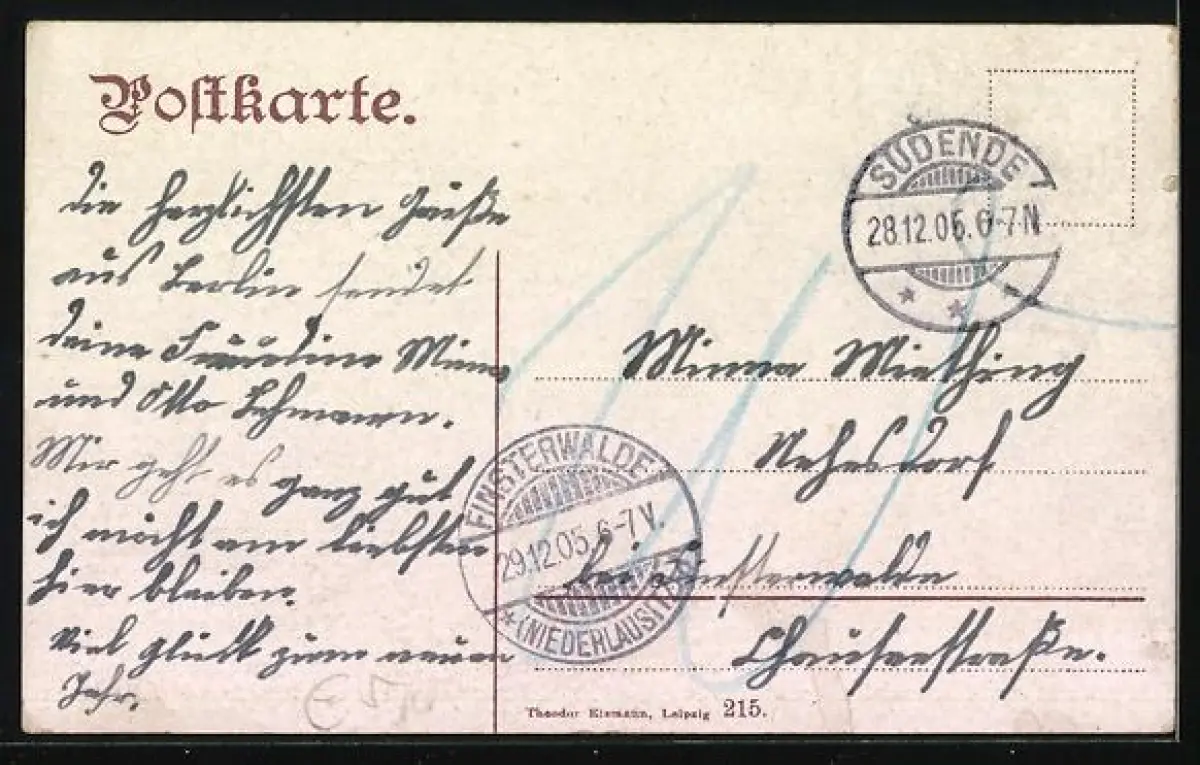 Postkarte.
die herzlichsten Grüße
aus Berlin sendet
deine Minna
und Otto Lehmann.
Mir geht es ganz gut
ich möcht am liebsten
hier bleiben.
Viel glück zum neuen
Jahr.
SÜDENDE
28.12.05. 6-7 N
FINSTERWALDE
29.12.05. 6-7 V.
(NIEDERLAUSITZ)
Minna Miething
Nehesdorf
bei Finsterwalde
Chauseestraße.
Theodor Eismann, Leipzig 215.